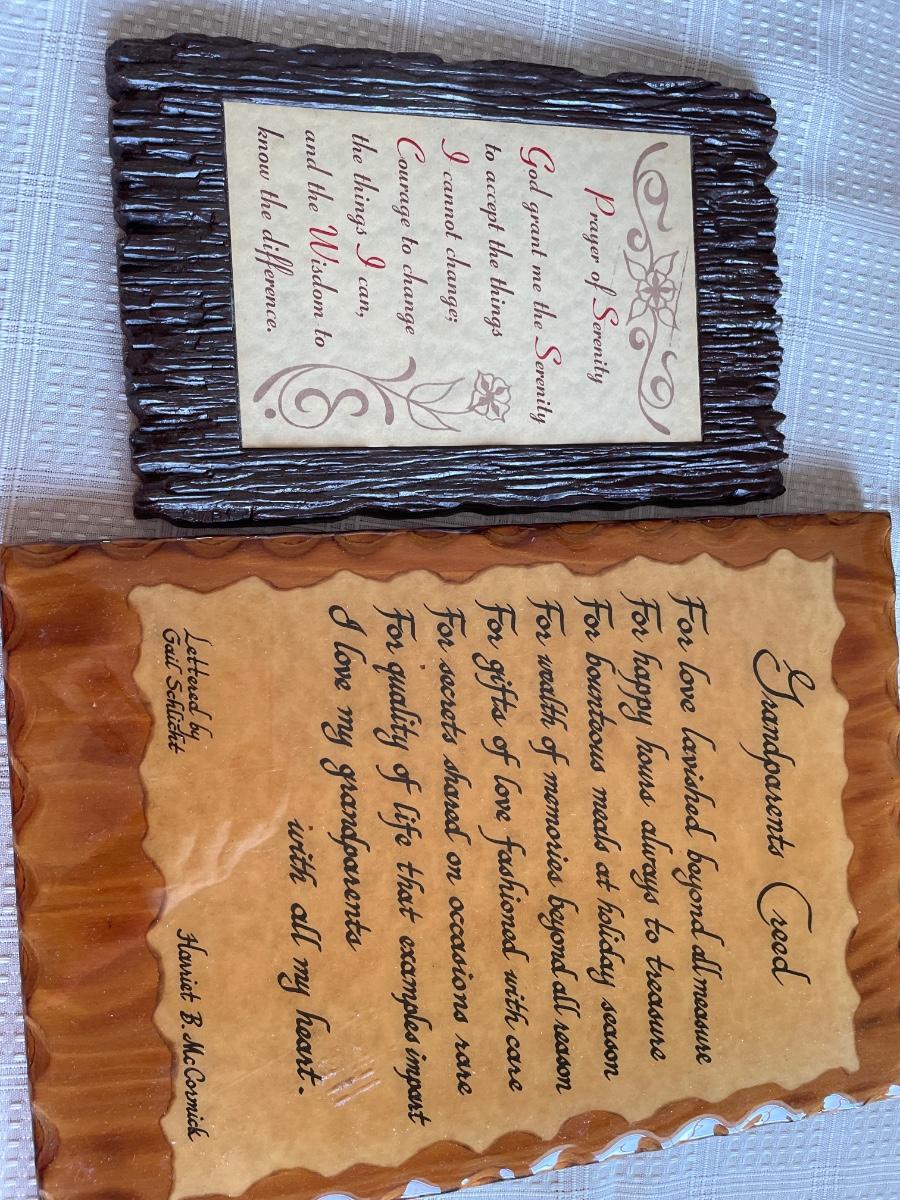 Prayer of Serenity
God grant me the Serenity
to accept the things
I cannot change;
Courage to change
the things I can,
and the Wisdom to
know the difference.
Grandparents Creed
For love lavished beyond all measure
For happy hours always to treasure
For bounteous meals at holiday season
For wealth of memories beyond all reason
For gifts of love fashioned with care
For secrets shared on occasions rare
For quality of life that examples impart
I love my grandparents
with all my heart.
Lettered by
Gail Schlicht
Harriet B. McCormick